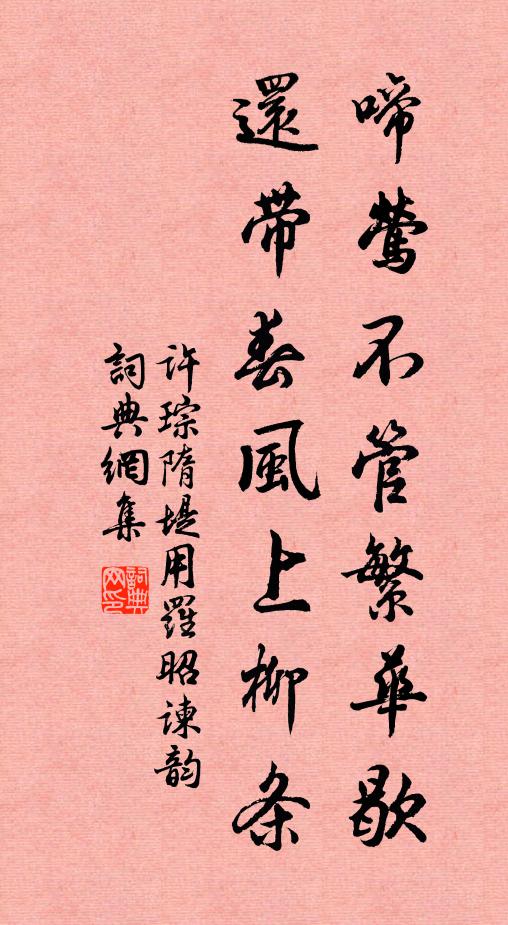 啼鶯不管繁華歇
還帶春風上柳条
许琮隋堤用羅昭諫韵
詞典網集
詞典网印